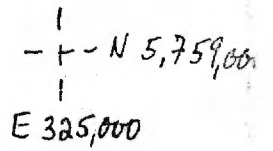 N 5,759,00
E 325,000